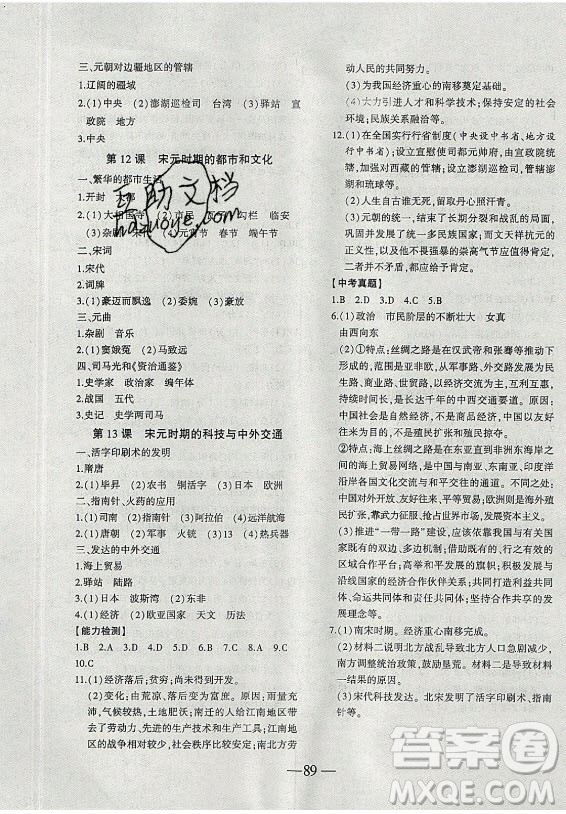 三、元朝对边疆地区的管辖
1.辽阔的疆域
2.(1)中央 (2)澎湖巡检司 台湾 (3)驿站 宣
政院 地方
3.中央
第12课 宋元时期的都市和文化
一、繁华的都市生活
1.开封 大都
2.(1)大相国寺 (2)市民 瓦子 勾栏 临安
(3)杂剧 宋词 (4)元宵节 春节 端午节
二、宋词
1.宋代
2.词牌
3.(1)豪迈而飘逸 (2)委婉 (3)豪放
三、元曲
1.杂剧 音乐
2.(1)窦娥冤 (2)马致远
四、司马光和《资治通鉴》
1.史学家 政治家 编年体
2.战国 五代
3.史记 史学两司马
第13课 宋元时期的科技与中外交通
一、活字印刷术的发明
1.隋唐
2.(1)毕昇 (2)农书 铜活字 (3)日本 欧洲
二、指南针、火药的应用
1.(1)司南 (2)指南针 (3)阿拉伯 (4)远洋航海
2.(1)唐朝 (2)军事 火铳 (3)13 (4)欧洲
三、发达的中外交通
1.海上贸易
2.驿站 陆路
3.(1)日本 波斯湾 (2)泉州 (3)非洲
4.(1)经济 (2)欧亚国家 天文 历法
【能力检测】
1.B 2.A 3.D 4.D 5.B 6.A 7.C 8.C 9.C
10.C
11.(1)经济落后;贫穷;尚未得到开发。
(2)变化:由荒凉、落后到富庶。原因:雨量充
沛,气候较热,土地肥沃;南迁的人给江南带来
了劳动力、先进的生产技术和生产工具;江南地
区的战争相对较少,社会秩序比较安定;南北方劳
动人民的共同努力。
(3)为我国经济重心的南移奠定基础。
(4)大力引进人才和科学技术;保持安定的社会
环境;民族关系融洽等。
12.(1)在全国实行行省制度(中央设中书省、地方设
行中书省);设置宣慰使司都元帅府,由宣政院统
辖,直接管辖西藏;设置澎湖巡检司,管辖澎湖
和琉球等。
(2)人生自古谁无死,留取丹心照汗青。
(3)元朝的统一结束了长期分裂和战乱的局面,
有利于统一多民族国家的发展;而文天祥抗元的
正义性,以及他不畏强暴的崇高气节应值得肯
定。因此,两者并不矛盾,都应给予肯定。
【中考真题】
1.B 2.D 3.D 4.C 5.B
6.(1)政治 市民阶层的不断壮大 女真
由西向东
(2)①特点:丝绸之路是在汉武帝时和东汉时下
形成的,范围是亚非欧,从军事路、外交路变成民
生路、商贸路,使世界文明多元主体,互利互惠,
持续上千年的中西交通要道。原因:当时的
中国是自然经济,主要是为了对外输出和文化
交流,不是单纯的对外贸易。
②特点:海上丝绸之路是亚洲和非洲东海岸之间的
海上贸易网络,是横跨东西方的海上贸易网络,
各国文化交流与合作之路、和平发展之路等。
原因:宋元时期,造船技术和航海技术的发展、
海外贸易繁荣、政府政策鼓励等。
(3)推进“一带一路”建设,应该依靠我国与有关
国家既有的双多边机制;借助既有的行之有效的
区域合作平台;高举和平发展的旗帜;积极主动
地发展与沿线国家的经济合作伙伴关系;共同打
造政治互信、经济融合、文化包容的利益共同体、
命运共同体和责任共同体。
7.(1)南宋时期。经济重心南移完成。
(2)关系:材料一说明北方战乱导致北方人口急剧减少,南
方相对安定、人口剧增。材料二是材料
一结果的原因。
(3)宋代科技发达。北宋发明了活字印刷术、指南
针等。
89
互助文档
hzuoye.com
答案圈
MXQE.COM